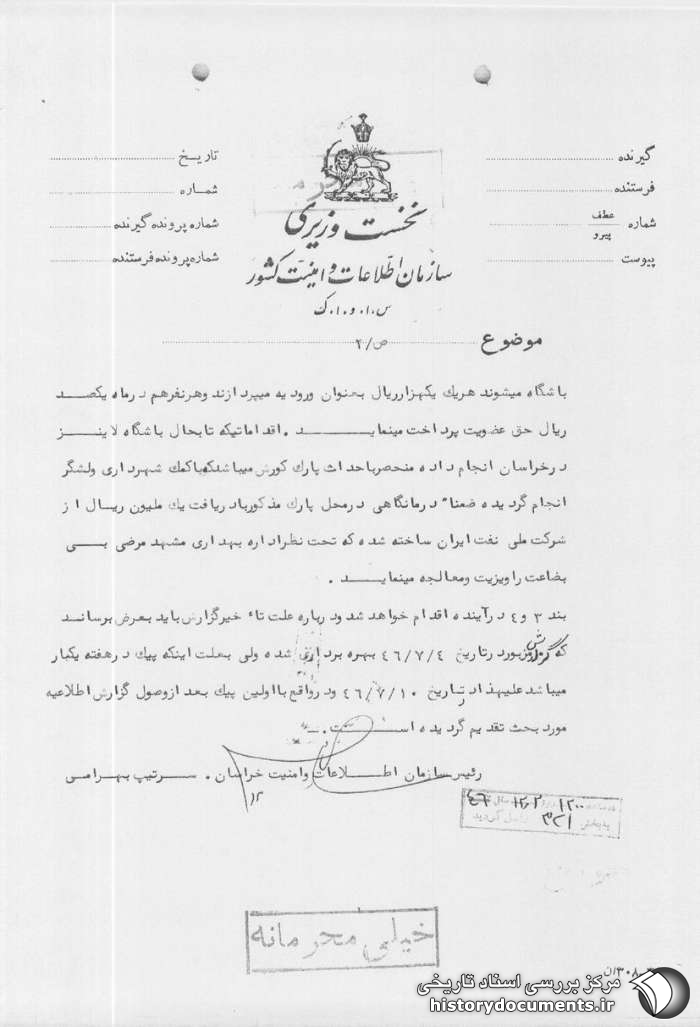 گیرنده
فرستنده
شماره عطف پیرو
پیوست
تاریخ
شماره
شماره پرونده گیرنده
شماره پرونده فرستنده
نخست وزیری
سازمان اطلاعات و امنیت کشور
س.ا.و.ا.ک
موضوع ص/۲
باشگاه میشوند هریك یکهزارریال بعنوان ورودیه میپردازند وهرنفرهم درماه یکصد
ریال حق عضویت پرداخت مینماید . اقداماتیکه تابحال باشگاه لاینز
درخراسان انجام داده منحصرباحداث پارك کورش میباشدکه باکمك شهرداری ولشگر
انجام گردیده ضمنا" درمانگاهی درمحل پارك مذکورباد ریافت یك ملیون ریال از
شرکت ملی نفت ایران ساخته شده که تحت نظراداره بهداری مشهد مرضی بی
بضاعت را ویزیت ومعالجه مینماید .
بند ۳ و ٤ درآینده اقدام خواهد شد ودرباره علت تاء خیرگزارش باید بعرض برساند
که گزارش مزبورد رتاریخ ٤٦/۷/٤ بهره برداری شده ولی بعلت اینکه پیك درهفته یکبار
میباشد علیهذا درتاریخ ٤٦/۷/۱۰ ودرواقع با اولین پیك بعد ازوصول گزارش اطلاعیه
مورد بحث تقدیم گردیده است .
رئیس سازمان اطلاعات وامنیت خراسان . سرتیپ بهرامی
۱۲۰۰ ٤٦
به بخش ۳۲۱ واصل گردید
خیلی محرمانه
مرکز بررسی اسناد تاریخی
historydocuments.ir